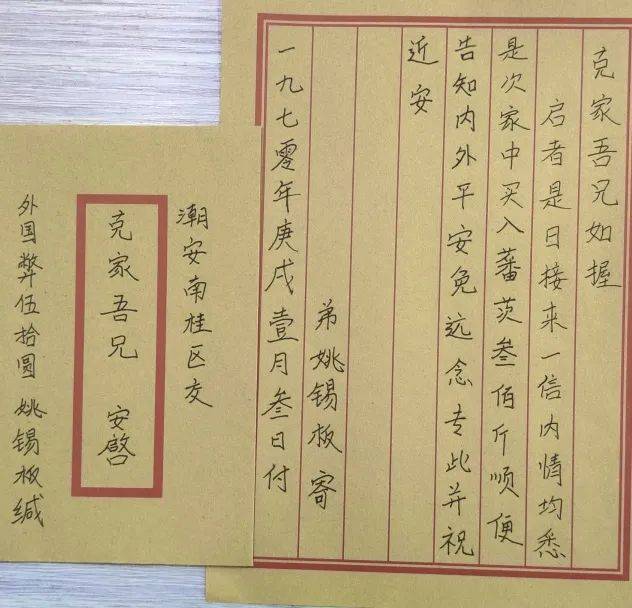 克家吾兄如握
启者是日接来一信内情均悉
是次家中买入蕃茨叁佰斤顺便
告知内外平安免远念专此并祝
近安
弟姚锡板寄
一九七零年庚戌壹月叁日付
潮安南桂区交
克家吾兄 安啓
外国弊伍拾圆 姚锡板缄